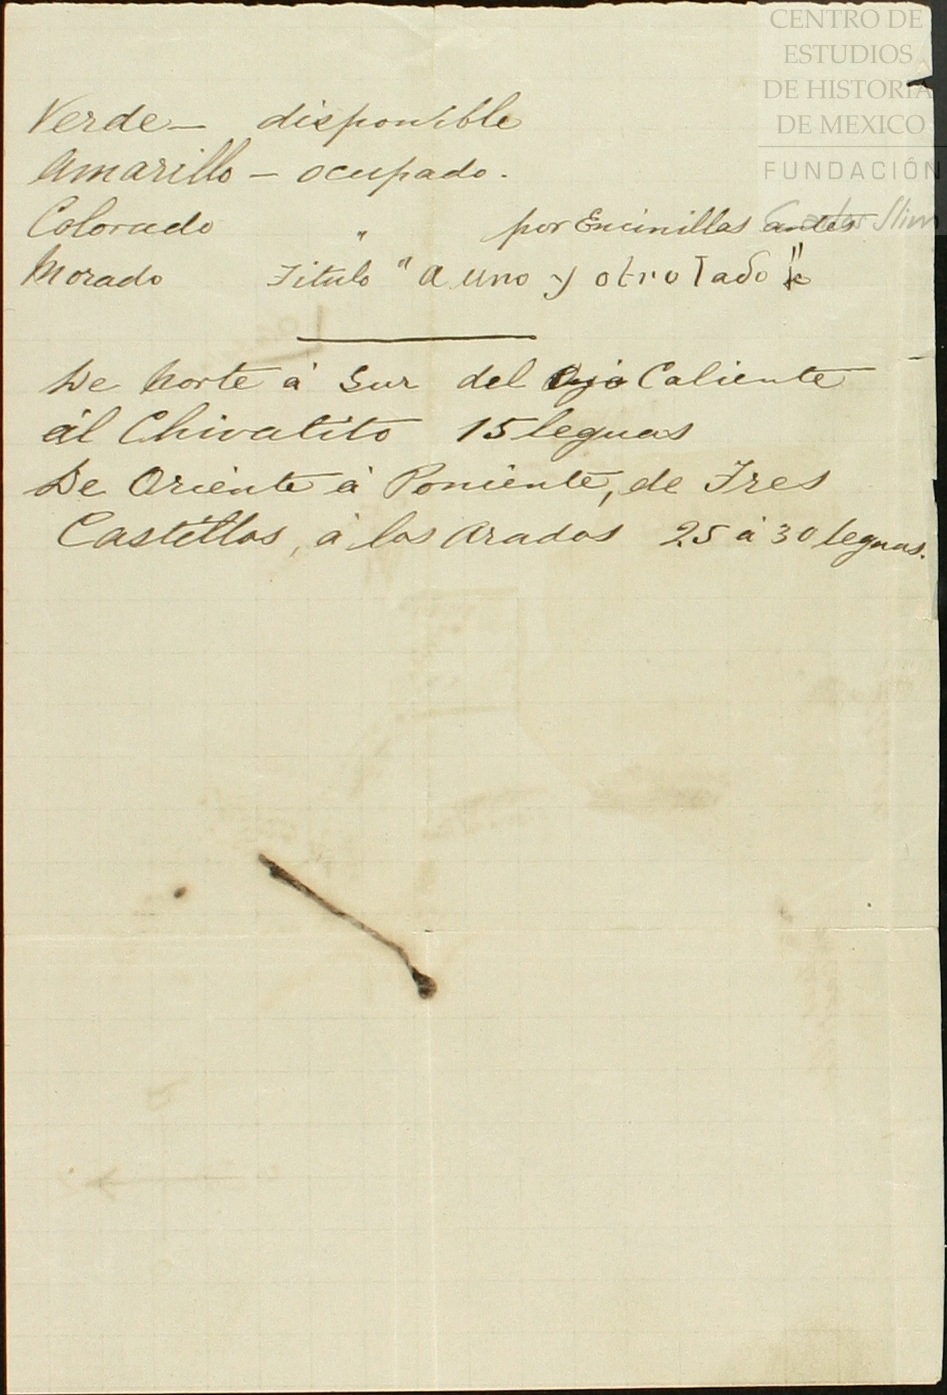 CENTRO DE
ESTUDIOS
DE HISTORIA
DE MEXICO
FUNDACIÓN
Carlos Slim
Verde — disponible
Amarillo — ocupado.
Colorado " por Encinillas antes
Morado Titulo "a uno y otro lado"
De Norte á Sur del Ojo Caliente
ál Chivatito 15 leguas
De Oriente á Poniente, de Tres
Castillos, á los Arados 25 á 30 leguas.